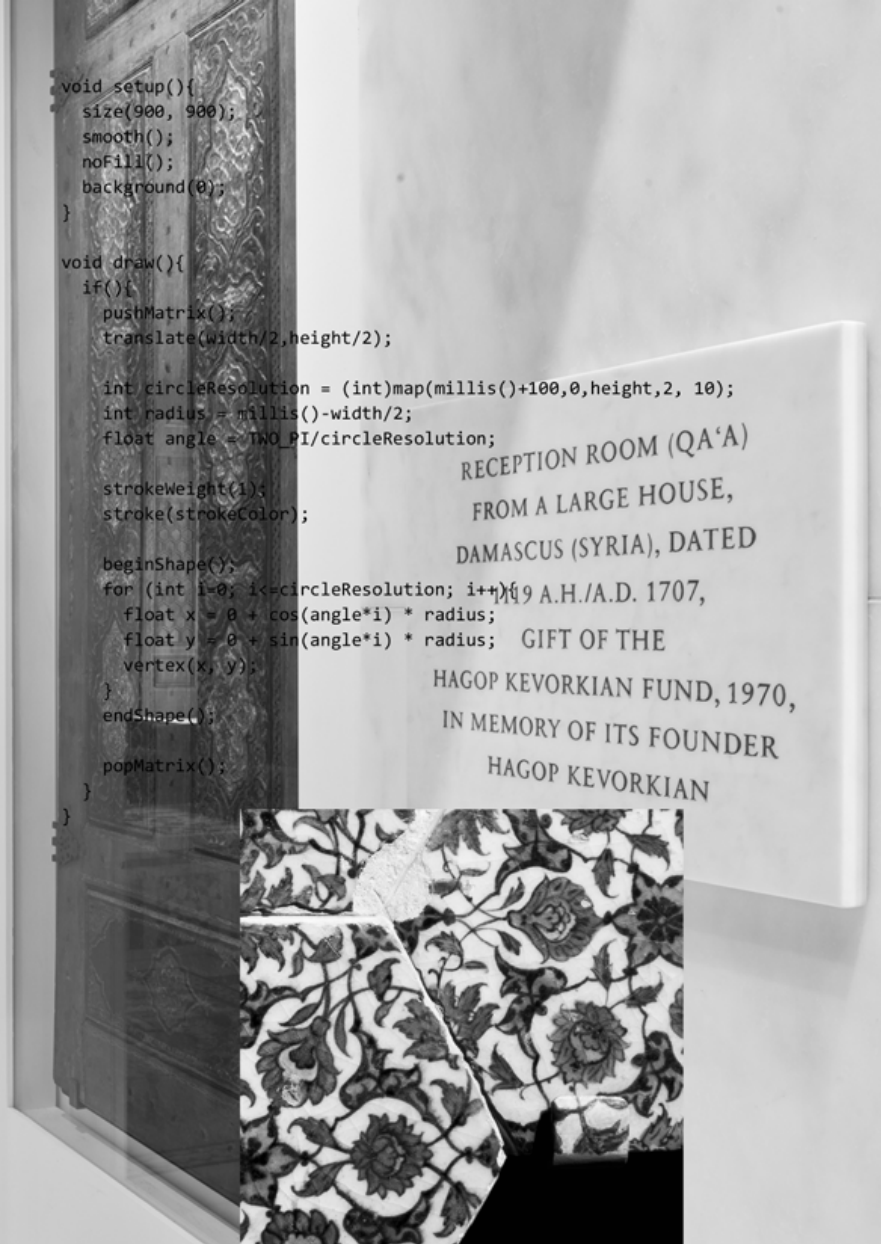 void setup(){
size(900, 900);
smooth();
noFill();
background(0);
}
void draw(){
if(){
pushMatrix();
translate(width/2,height/2);
int circleResolution = (int)map(millis()+100,0,height,2, 10);
int radius = millis()-width/2;
float angle = TWO_PI/circleResolution;
strokeWeight(1);
stroke(strokeColor);
beginShape();
for (int i=0; i<=circleResolution; i++){
float x = 0 + cos(angle*i) * radius;
float y = 0 + sin(angle*i) * radius;
vertex(x, y);
}
endShape();
popMatrix();
}
}
RECEPTION ROOM (QAʻA)
FROM A LARGE HOUSE,
DAMASCUS (SYRIA), DATED
1119 A.H./A.D. 1707,
GIFT OF THE
HAGOP KEVORKIAN FUND, 1970,
IN MEMORY OF ITS FOUNDER
HAGOP KEVORKIAN